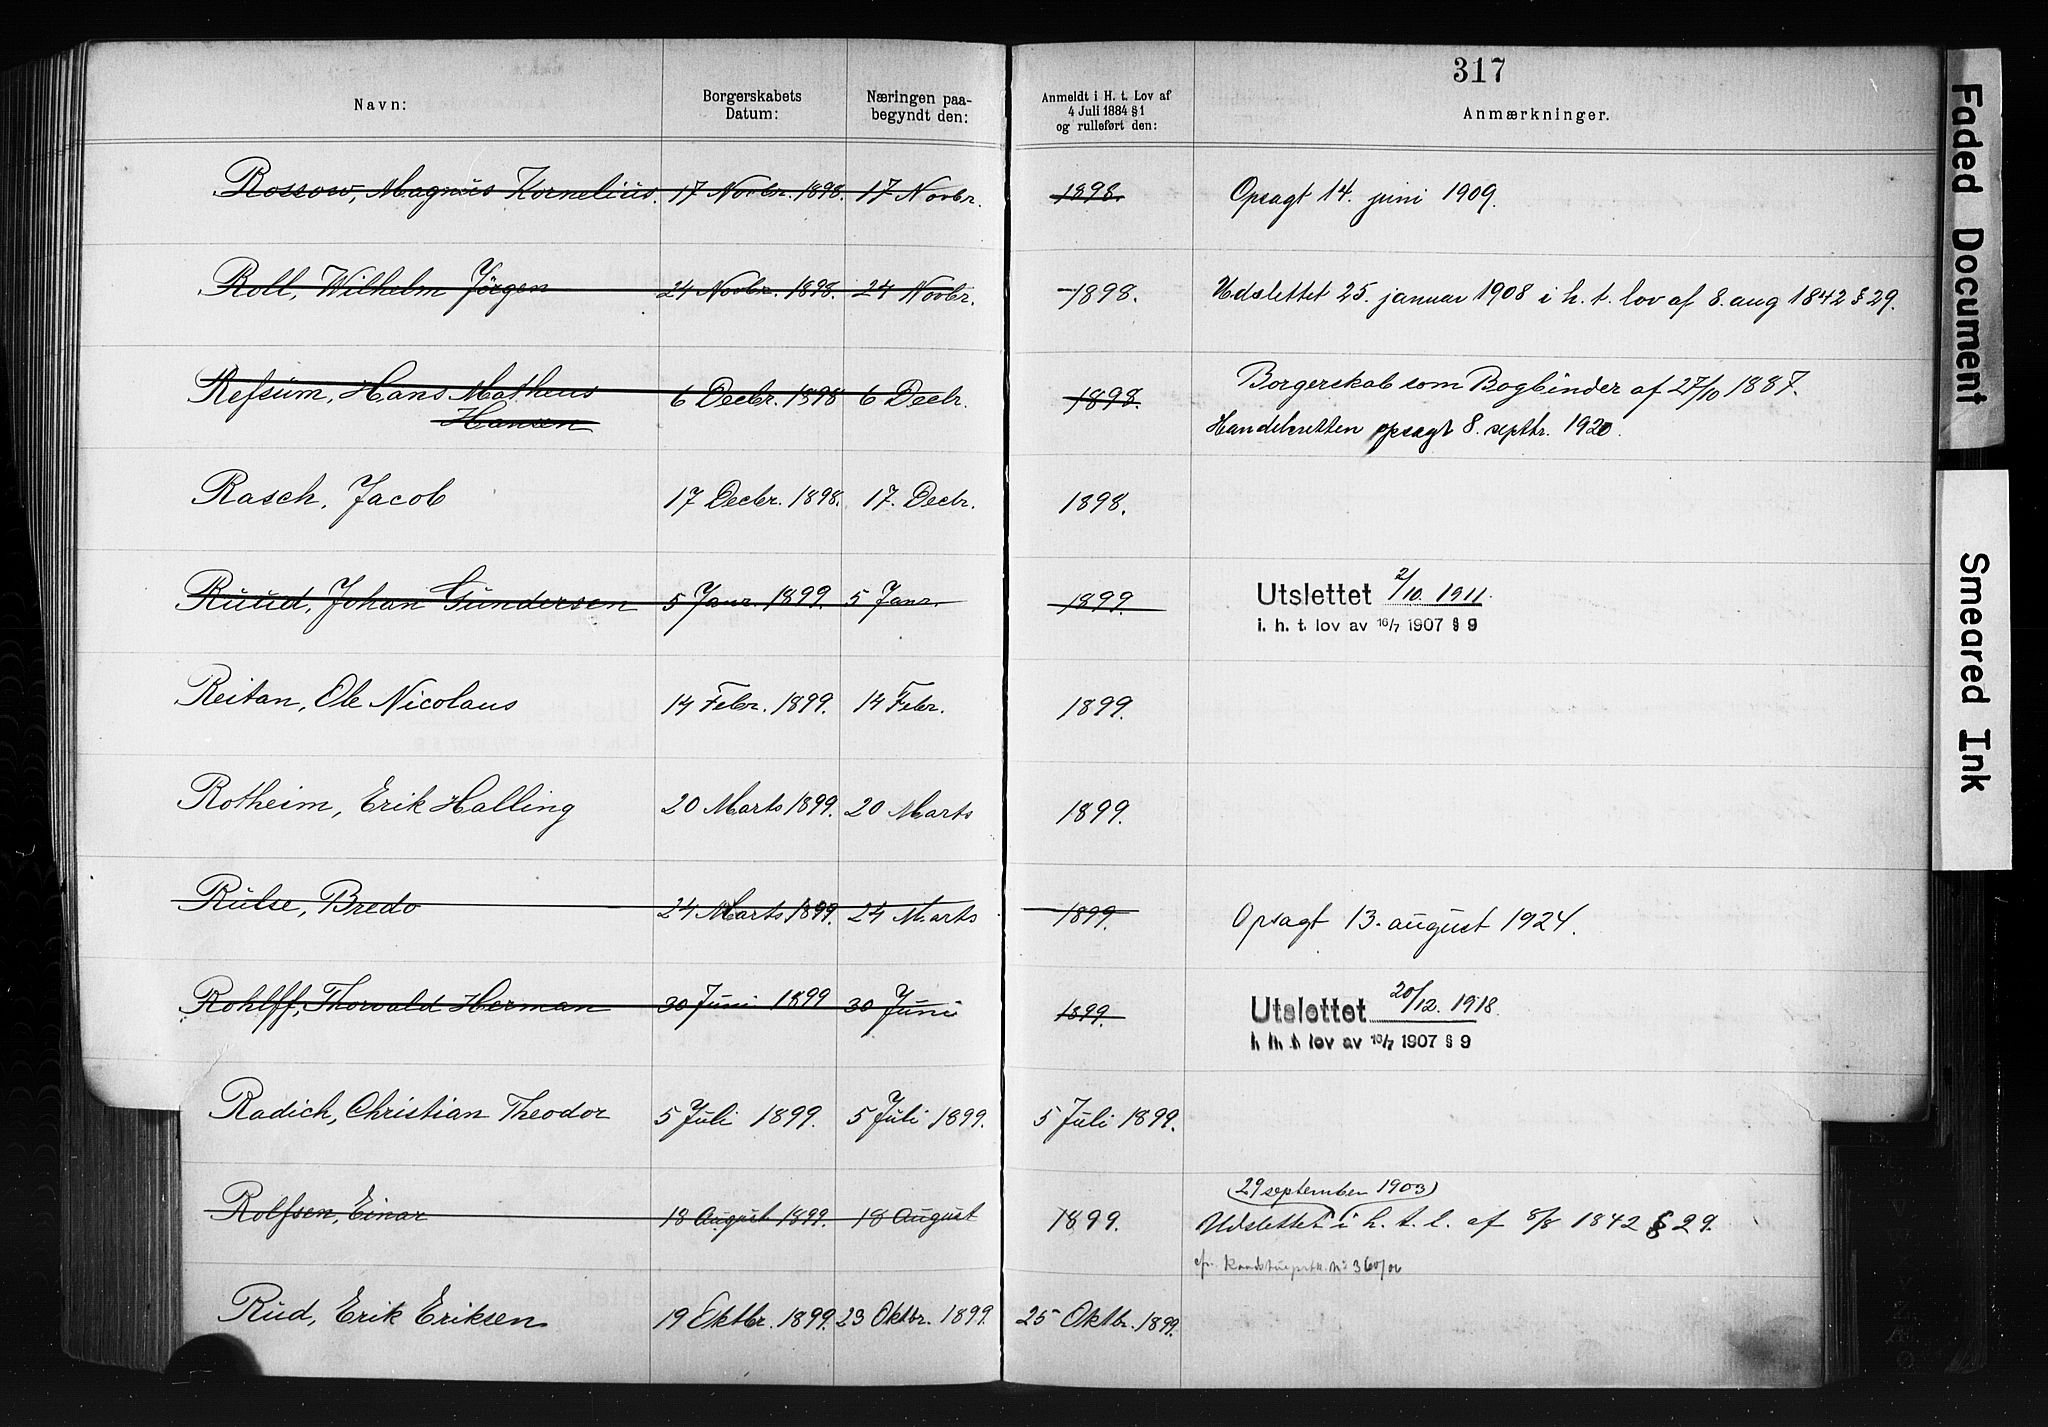 317
Navn: Borgerskabets Datum: Næringen paa-begyndt den: Anmeldt i H. t. Lov af 4 Juli 1884 § 1 og rulleført den: Anmærkninger.
Rossow, Magnus Kornelius. 17 Novbr. 1898. 17 Novbr. 1898. Opsagt 14. juni 1909.
Roll, Wilhelm Jörgen 24 Novbr. 1898. 24 Novbr. 1898. Udslettet 25. januar 1908 i h. t. lov af 8. aug 1842 § 29.
Refsum, Hans Matheus 6 Decbr. 1898 6 Decbr. 1898. Borgerskab som Bogbinder af 27/10 1887.
Hansen Handelsretten opsagt 8. septbr. 1920.
Rasch, Jacob 17 Decbr. 1898. 17. Decbr. 1898.
Ruud, Johan Gundersen 5 Janr. 1899. 5 Janr. 1899. Utslettet 2/10. 1911.
i. h. t. lov av 16/7 1907 § 9
Reitan, Ole Nicolaus 14 Febr. 1899. 14 Febr. 1899.
Rotheim, Erik Halling 20 Marts 1899. 20 Marts 1899.
Rulse, Bredo 24 Marts 1899. 24 Marts 1899. Opsagt 13. august 1924.
Rohlff, Thorvald Herman 30 Juni 1899 30 Juni 1899. Utslettet 20/12. 1918.
i. h. t. lov av 16/7 1907 § 9
Radich, Christian Theodor 5 Juli 1899. 5 Juli 1899. 5 Juli 1899.
(29 september 1903)
Rolfsen, Einar 18 August 1899. 18 August 1899. Udslettet i h. t. l. af 8/8 1842 § 29.
Rud, Erik Eriksen 19 Oktbr. 1899. 23 Oktbr. 1899. 25 Oktbr. 1899.
Faded Document
Smeared Ink